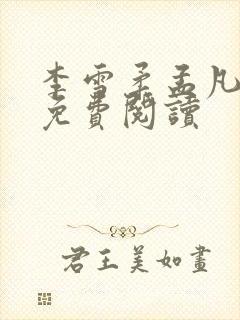 李雪柔孟凡
免費閱讀
君王美如畫